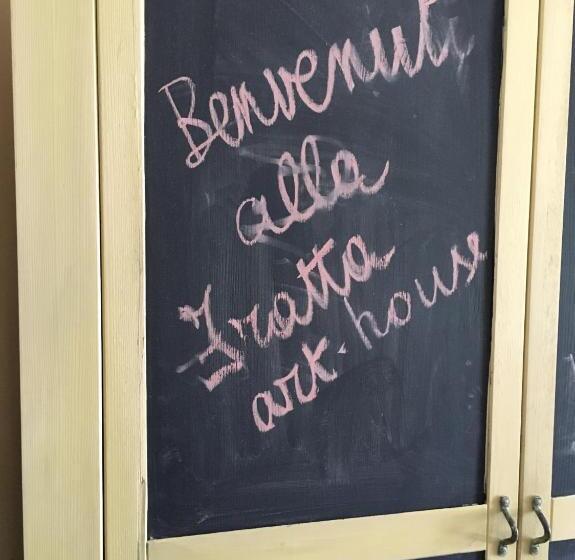 Benvenuti
alla
Fratta
art-house